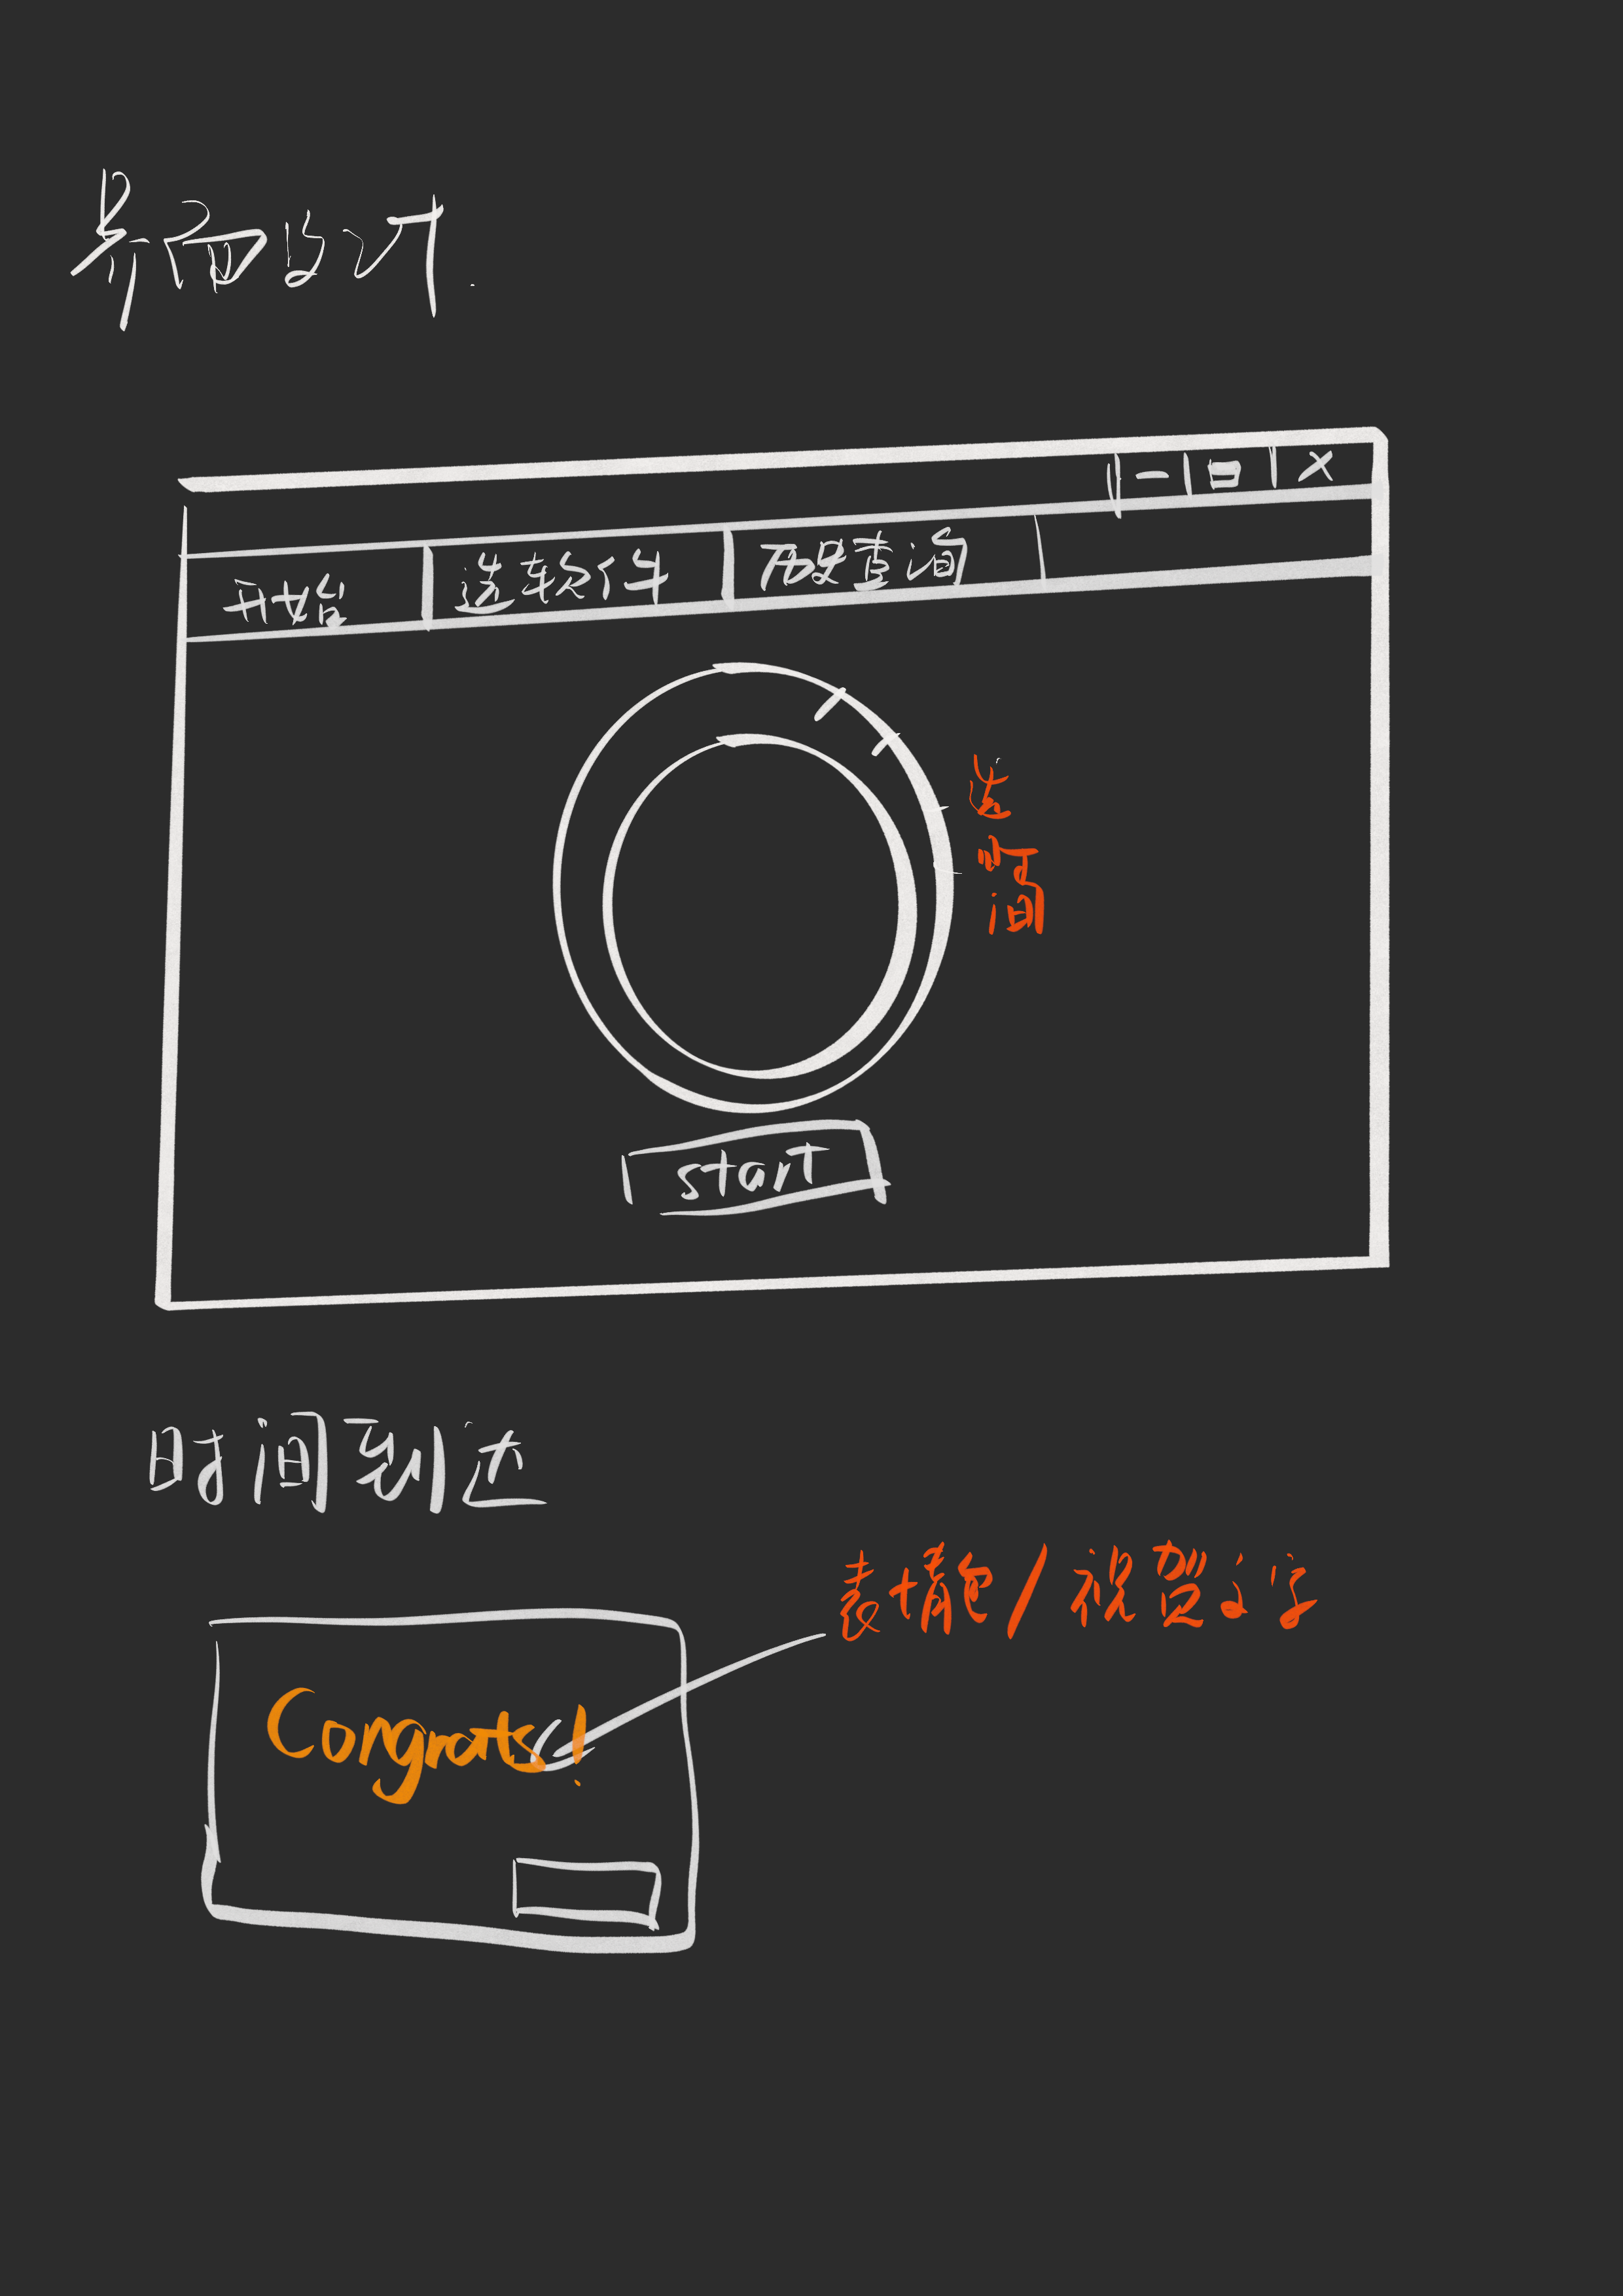 界面设计
开始
选择软件
改变查询
选
时
间
start
时间到达
表情包/祝贺文字
Congrats!